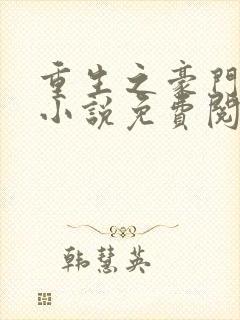 重生之豪門
小說免費閱
韩慧英